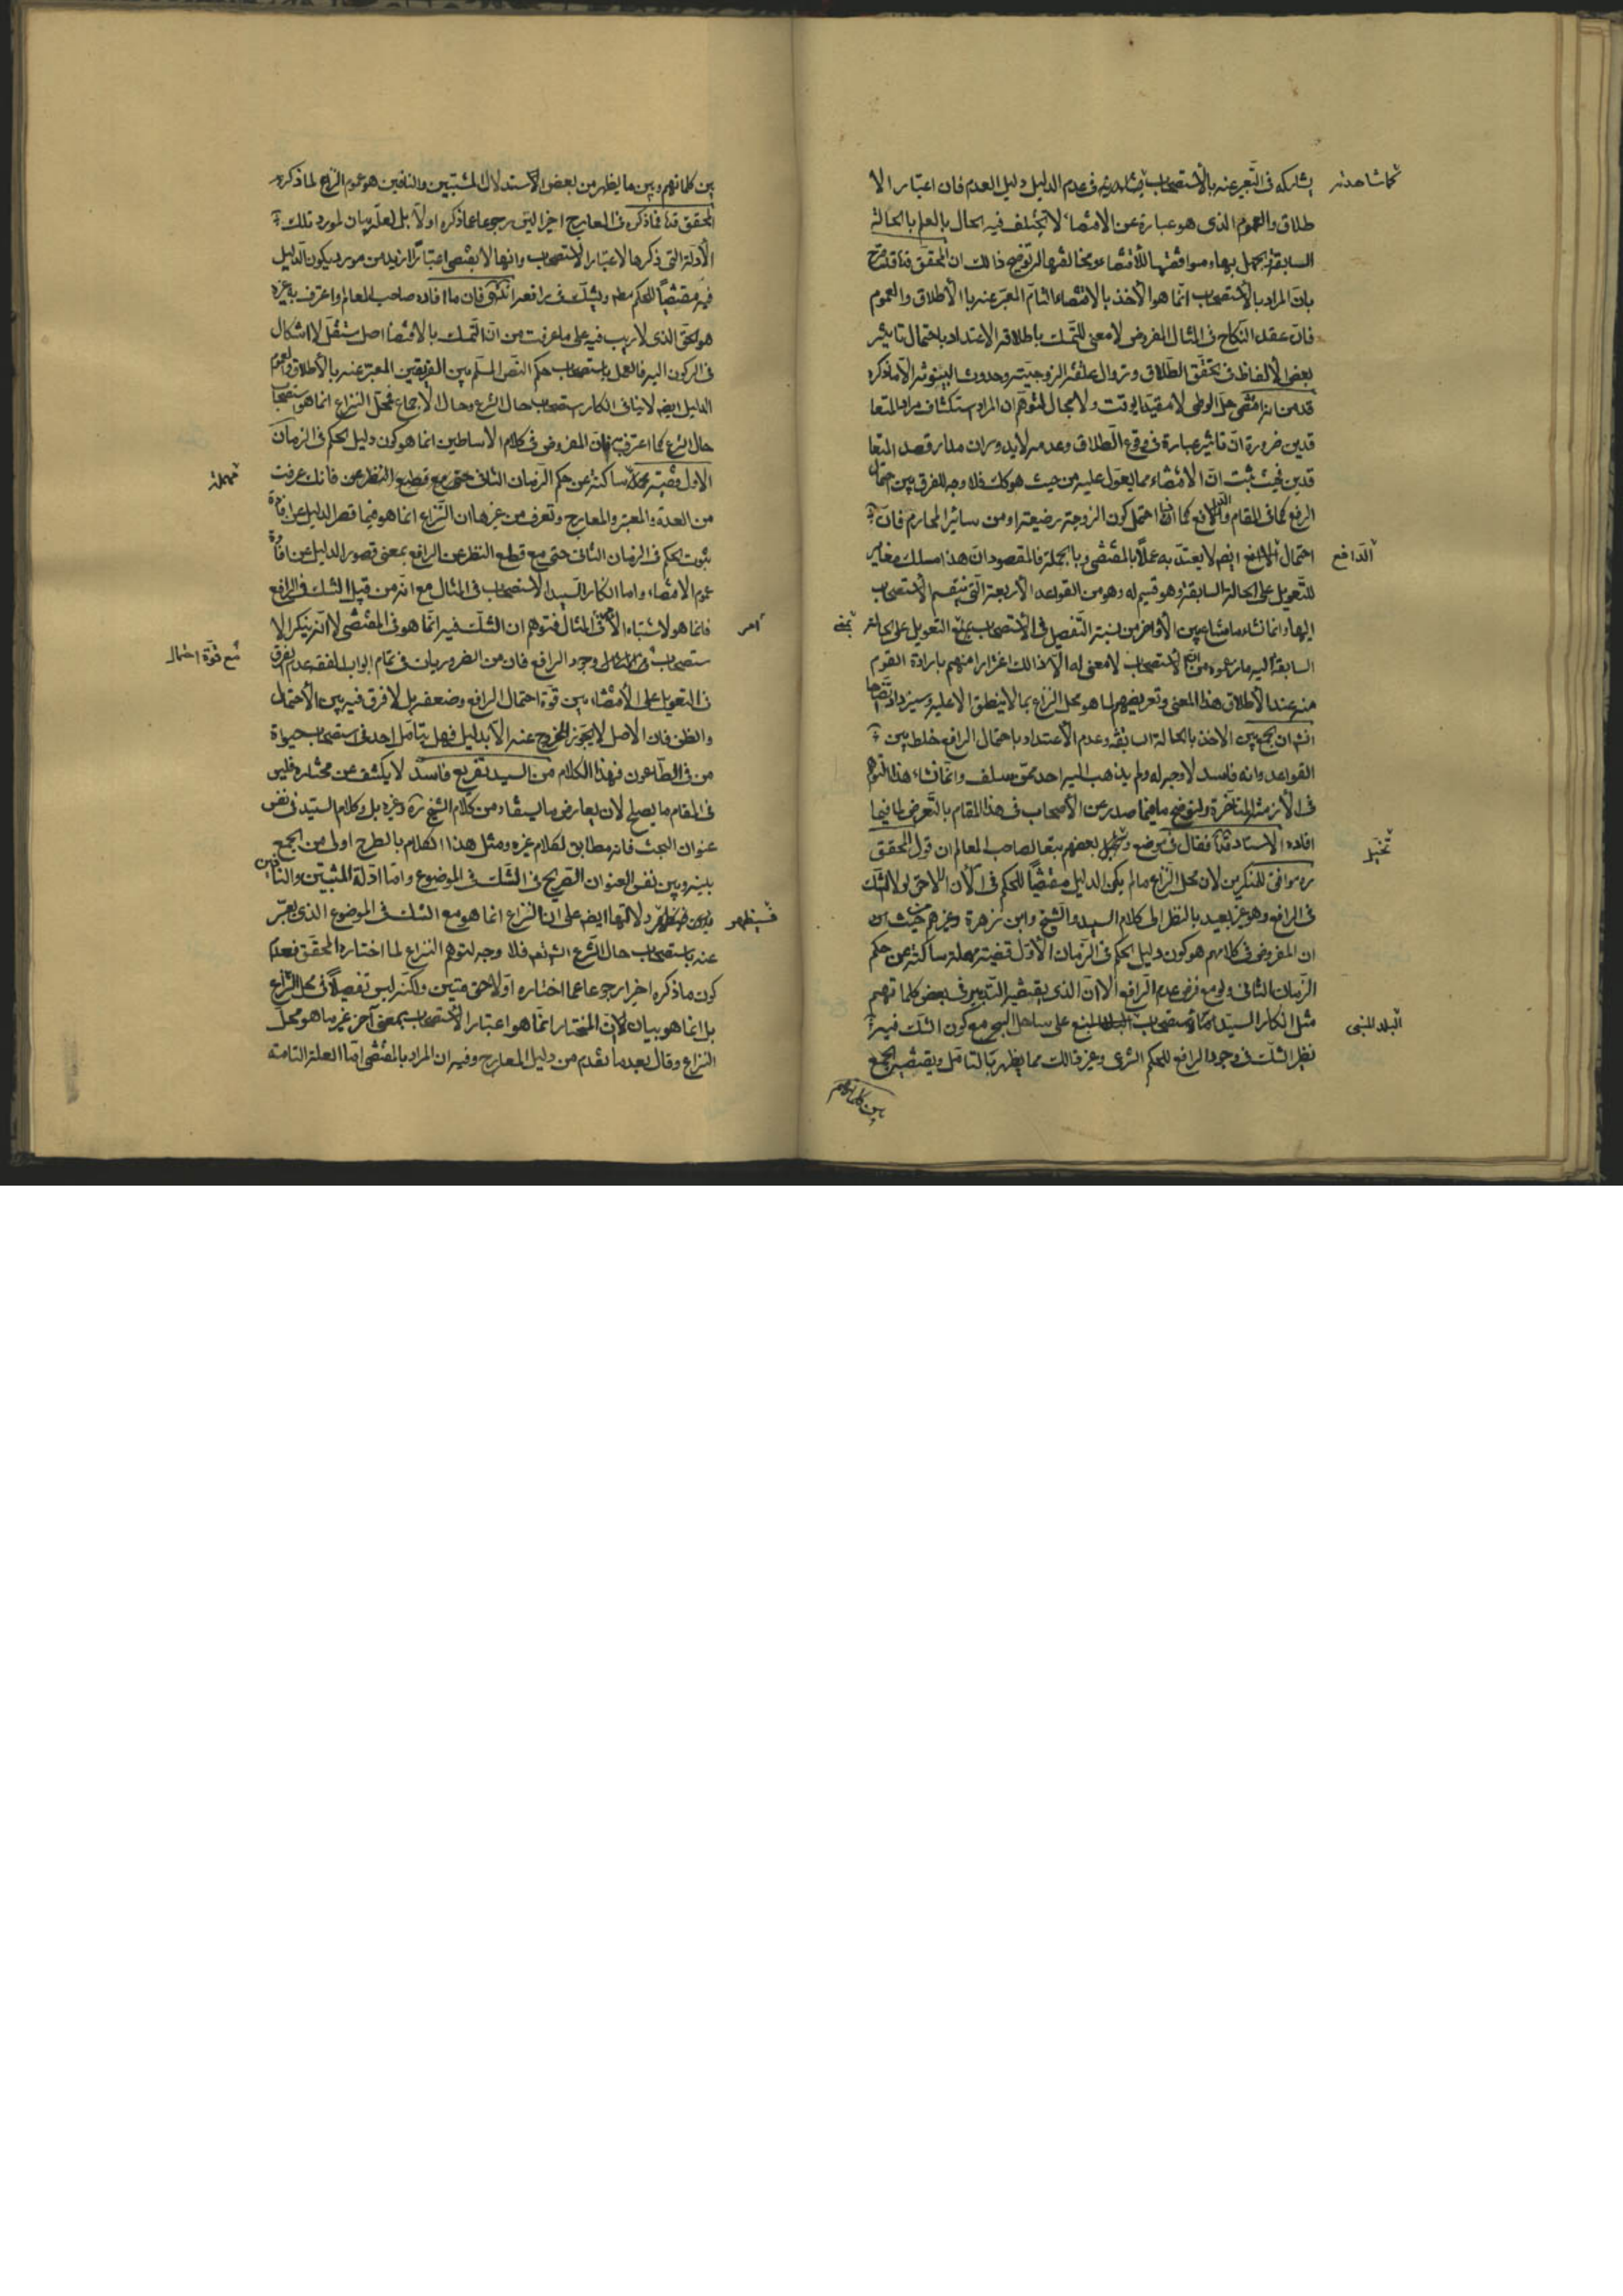 يشاركه فى التعبير عنه بالاستصحاب فى عدم الدليل دليل العدم فان اعتبار الا
طلاق والعموم الذى هو عبارة عن الاقتضاء لا يختلف فيه الحال بالعلم بالحالة
السابقة والجهل بها وموافقتها للاقتضاء ومخالفتها له توضيح ذلك ان المحقق قده قد صرح
بان المراد بالاستصحاب انما هو الاخذ بالاقتضاء التام المعبر عنه بالاطلاق والعموم
فان عقد النكاح فى المثال المفروض لا معنى للتمسك باطلاقه الاعتداد باحتمال تاثير
بعض الالفاظ فى تحقق الطلاق وزوال علقة الزوجية وحدوث البينونة الا ما ذكره
قده من انه اقتضى حل الوطى لا مقيدا بوقت ولا مجال لتوهم ان المراد استكشاف مراد المتعا
قدين ضرورة ان تاثير عبارة فى وقوع الطلاق وعدمه لا يدور مدار قصد المتعا
قدين فحيث ثبت ان الاقتضاء مما يعول عليه من حيث هو كك فلا وجه للفرق بين احتمال
الرفع كما فى المقام والدفع كما اذا احتمل كون الزوجة رضيعة او من سائر المحارم فان
احتمال الدافع ايضا لا يعتد به عملا بالمقتضى وبالجملة فالمقصود ان هذا مسلك مغاير
للتعويل على الحالة السابقة وهو قسيم له وهو من القواعد الاربعة التى ينقسم الاستصحاب
اليها وانما نشاء ما شاع بين الاواخر من نسبة التفصيل فى الاستصحاب بمعنى التعويل على الحالة
السابقة اليه ما زعموه من ان الاستصحاب لا معنى له الا ذلك اغترارا منهم بارادة القوم
منه عند الاطلاق هذا المعنى وتعريضهم لما هو محل النزاع بما لا ينطبق الا عليه وسيزداد اتضاحا
انش ان الجمع بين الاخذ بالحالة السابقة وعدم الاعتداد باحتمال الرافع خلط بين
القواعد وانه فاسد لا وجه له ولم يذهب اليه احد ممن سلف وانما نشاء هذا التوهم
فى الازمنة المتاخرة ولنوضح ما صدر عن الاصحاب فى هذا المقام بالتعرض لما فيها
افاده الاستاد قده فقال فى موضع وتخيل بعضهم تبعا لصاحب المعالم ان قول المحقق
ره موافق للمنكرين لان محل النزاع ما لم يكن الدليل مقتضيا للحكم فى الان اللاحق لولا الشك
فى الرافع وهو غير بعيد بالنظر الى كلام السيد والشيخ وابن زهرة وغيرهم حيث
ان المفروض فى كلامهم هو كون دليل الحكم فى الزمان الاول قضية مهملة ساكتة عن حكم
الزمان الثانى ولو مع فرض عدم الرافع الا ان الذى يقتضيه التدبر فى بعض كلماتهم
مثل انكار السيد استصحاب البلد المبنى على ساحل البحر مع كون الشك فيه
نظير الشك فى وجود الرافع للحكم الشرعى وغير ذلك مما يظهر بالتامل ويقتضيه الجمع
بين كلماتهم
كما شاهدته
الدافع
بمعنى
تخيل
البلد المبنى
بين كلماتهم وبين ما يظهر من بعض الاستدلال المثبتين والنافين هو عموم النزاع لما ذكره
المحقق قده فما ذكره فى المعارج اخيرا ليس رجوعا عما ذكره اولا بل لعله بيان لمورد تلك
الادلة التى ذكرها لاعتبار الاستصحاب وانها لا يقتضى اعتبارا ازيد من مورد يكون الدليل
فيه مقتضيا للحكم مطلقا ويشك فى رافعه انتهى فان ما افاده صاحب المعالم واعترف به غيره
هو الحق الذى لا ريب فيه على ما عرفت من ان التمسك بالاقتضاء اصل مستقل لا اشكال
فى الركون اليه فالعمل باستصحاب حكم النص المسلم بين الفريقين المعبر عنه بالاطلاق والعموم
الدليل ايضا لا ينافى انكار استصحاب حال الشرع وحال الاجماع فمحل النزاع انما هو استصحاب
حال الشرع كما اعترف به فان المفروض فى كلام الاساطين انما هو كون دليل الحكم فى الزمان
الاول قضية ساكتة عن حكم الزمان الثانى حتى مع قطع النظر عن فانك عرفت
من العدة والمعتبر والمعارج وتعرف من غيرها ان النزاع انما هو فيما قصر الدليل عن افادة
ثبوت الحكم فى الزمان الثانى حتى مع قطع النظر عن الرافع بمعنى قصور الدليل عن افادة
عموم الاقتضاء واما انكار السيد الاستصحاب فى المثال مع انه من قبيل الشك فى الرافع
فانما هو لاشتباه الامر فى المثال فتوهم ان الشك فيه انما هو فى المقتضى لا انه ينكر الا
ستصحاب وجود الرافع فان من الضروريات فى تمام ابواب الفقه عدم الفرق
فى التعويل على الاقتضاء بين قوة احتمال الرافع وضعفه بل لا فرق فيه بين الاحتمال
والظن فان الاصل لا يجوز الخروج عنه الا بدليل فهل يتامل احد فى استصحاب حيوة
من فى الطاعون فهذا الكلام من السيد تفريع فاسد لا يكشف عن مختاره فليس
فى المقام ما يصلح لان يعارض ما يستفاد من كلام الشيخ ره وغيره بل وكلام السيد فى نفس
عنوان البحث فانه مطابق لكلام غيره ومثل هذا الكلام بالطرح اولى من الجمع
بينه وبين نفس العنوان الصريح فى الشك فى الموضوع واما ادلة المثبتين والنافين
دلالتها ايضا على ان النزاع انما هو مع الشك فى الموضوع الذى يعبر
عنه باستصحاب حال الشرع فلا وجه لتوهم النزاع لما اختاره المحقق فعدم
كون ما ذكره اخيرا رجوعا عما اختاره اولا حق متين ولكنه ليس تفصيلا فى محل النزاع
بل انما هو بيان لان المختار انما هو اعتبار الاستصحاب بمعنى آخر غير ما هو محل
النزاع وقال بعد ما تقدم من دليل المعارج وفيه ان المراد بالمقتضى اما العلة التامة
مهملة
امر
مع قوة احتمال
فسيظهر